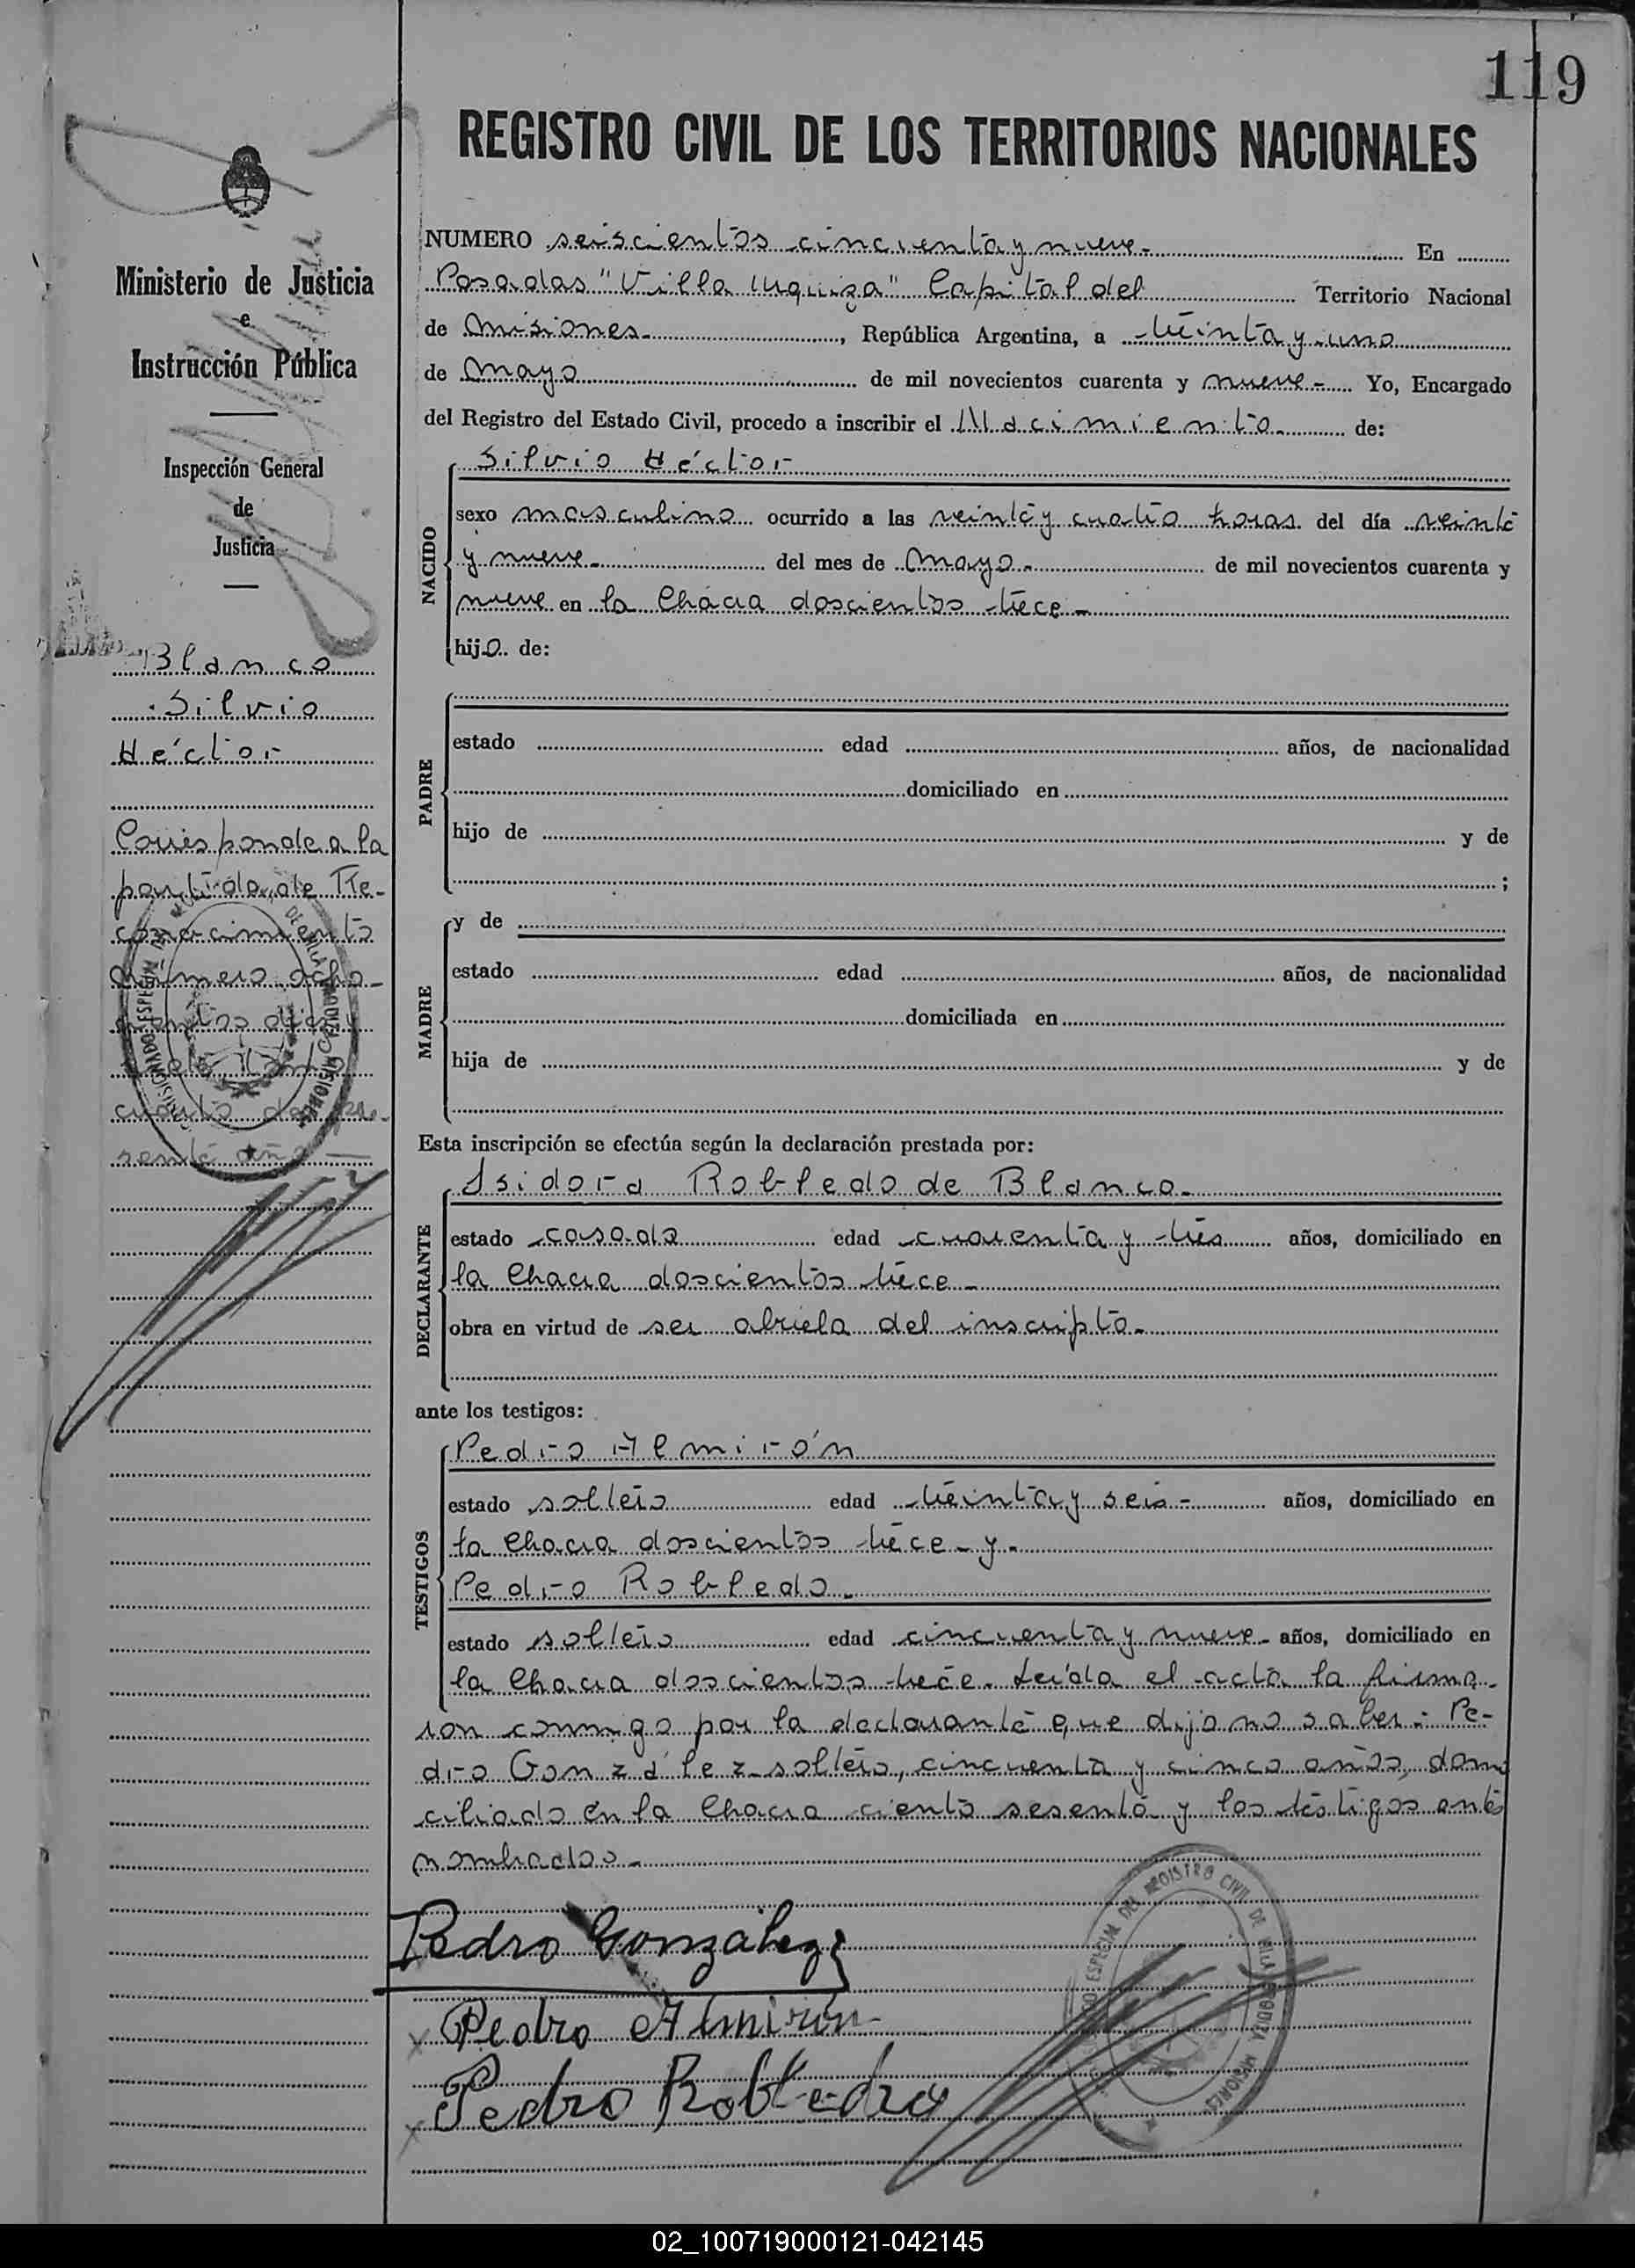 119
REGISTRO CIVIL DE LOS TERRITORIOS NACIONALES
Ministerio de Justicia
e
Instrucción Pública
Inspección General
de
Justicia
Blanco
Silvio
Héctor
Corresponde a la
partida de Re-
conocimiento
número ocho-
cientos diez y
cuarto del pre-
sente año
NUMERO seiscientos cincuenta y nueve.- En
Posadas "Villa Urquiza" Capital del Territorio Nacional
de Misiones.- , República Argentina, a treinta y uno
de Mayo de mil novecientos cuarenta y nueve.- Yo, Encargado
del Registro del Estado Civil, procedo a inscribir el Nacimiento de:
NACIDO
Silvio Héctor
sexo masculino ocurrido a las veinte y cuatro horas del día veinte
y nueve.- del mes de Mayo.- de mil novecientos cuarenta y
nueve en la Chacra doscientos trece.-
hijo de:
PADRE
estado edad años, de nacionalidad
domiciliado en
hijo de y de
;
MADRE
y de
estado edad años, de nacionalidad
domiciliada en
hija de y de
Esta inscripción se efectúa según la declaración prestada por:
DECLARANTE
Isidora Robledo de Blanco.
estado casada edad cuarenta y tres años, domiciliado en
la Chacra doscientos trece.-
obra en virtud de ser abuela del inscripto.-
ante los testigos:
TESTIGOS
Pedro Almirón
estado soltero edad treinta y seis.- años, domiciliado en
la Chacra doscientos trece.- y.-
Pedro Robledo.
estado soltero edad cincuenta y nueve.- años, domiciliado en
la Chacra doscientos trece. Leída el acta la firma-
ron conmigo por la declarante que dijo no saber: Pe-
dro González soltero, cincuenta y cinco años, domi
ciliado en la Chacra ciento sesenta y los testigos ante
nombrados.-
Pedro González
Pedro Almirón
Pedro Robledo
ESPECIAL DEL REGISTRO CIVIL DE VILLA URQUIZA MISIONES
02_100719000121-042145